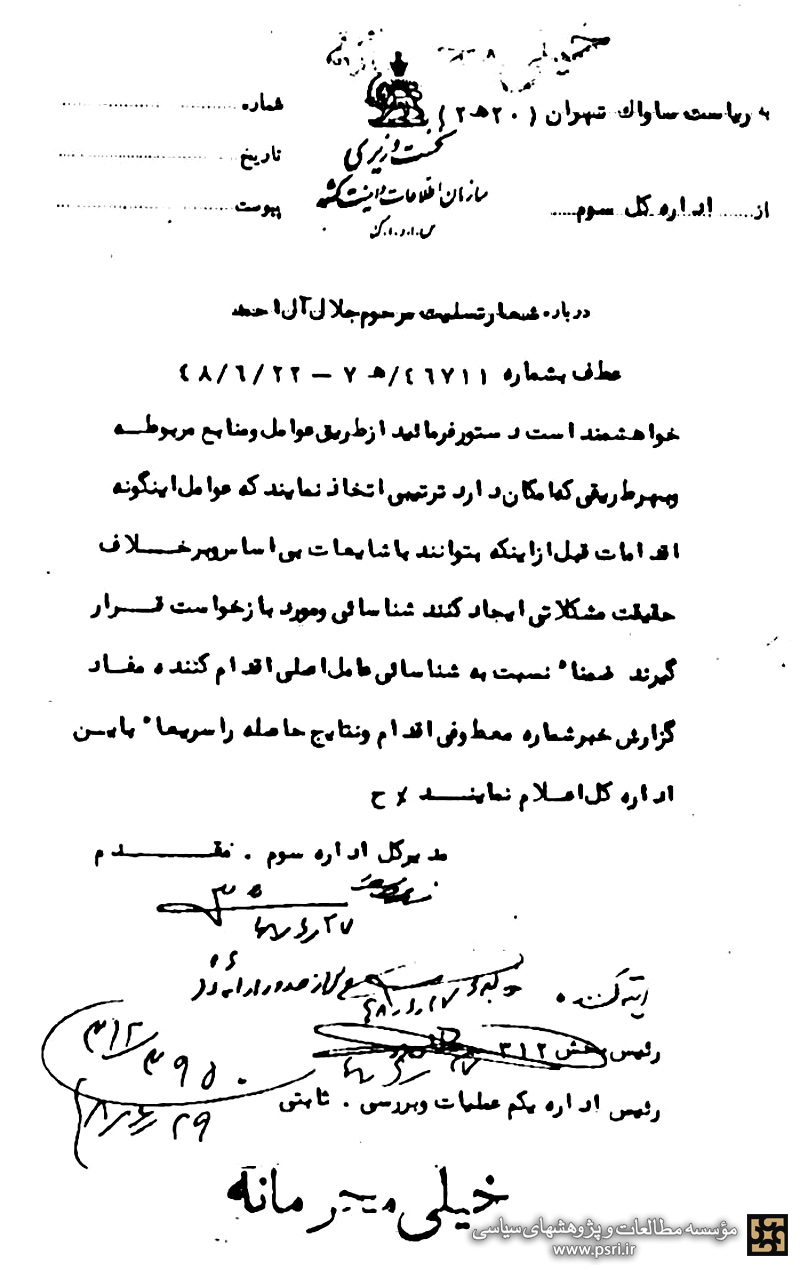 به ریاست ساواک تهران (۲۰ هـ ۲)
نخست وزیری
سازمان اطلاعات و امنیت کشور
س.ا.و.ا.ک
از اداره کل سوم
شماره
تاریخ
پیوست
درباره شعار تسلیت مرحوم جلال آل احمد
عطف بشماره ۴۶۷۱۱/هـ ۷ – ۴۸/۶/۲۲
خواهشمند است دستور فرمائید از طریق عوامل و منابع مربوطه
وبهر طریقی که امکان دارد ترتیبی اتخاذ نمایند که عوامل اینگونه
اقدامات قبل از اینکه بتوانند با شایعات بی اساس وبر خلاف
حقیقت مشکلاتی ایجاد کنند شناسائی ومورد بازخواست قرار
گیرند ضمنا" نسبت به شناسائی عامل اصلی اقدام کننده مفاد
گزارش خبر شماره معطوفی اقدام ونتایج حاصله را سریعا" باین
اداره کل اعلام نمایند / ح
مدیر کل اداره سوم . مقدم
رئیس بخش ۳۱۲
۳۱۲/۳۹۵۰
رئیس اداره یکم عملیات وبررسی . ثابتی
خیلی محرمانه
مؤسسه مطالعات و پژوهشهای سیاسی
www.psri.ir